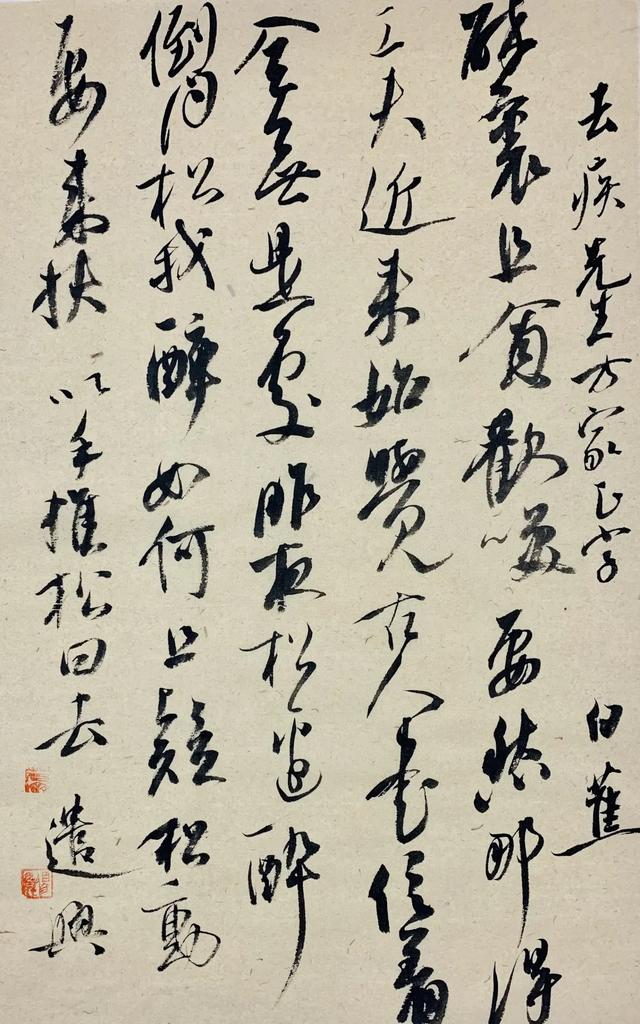 去疾先生方家正字 白蕉
醉裏且貪歡咲要愁那得
工夫近来始覺古人書信着
全無是處昨夜松邊醉
倒問松我醉如何且疑松動
要来扶以手推松曰去 遣興